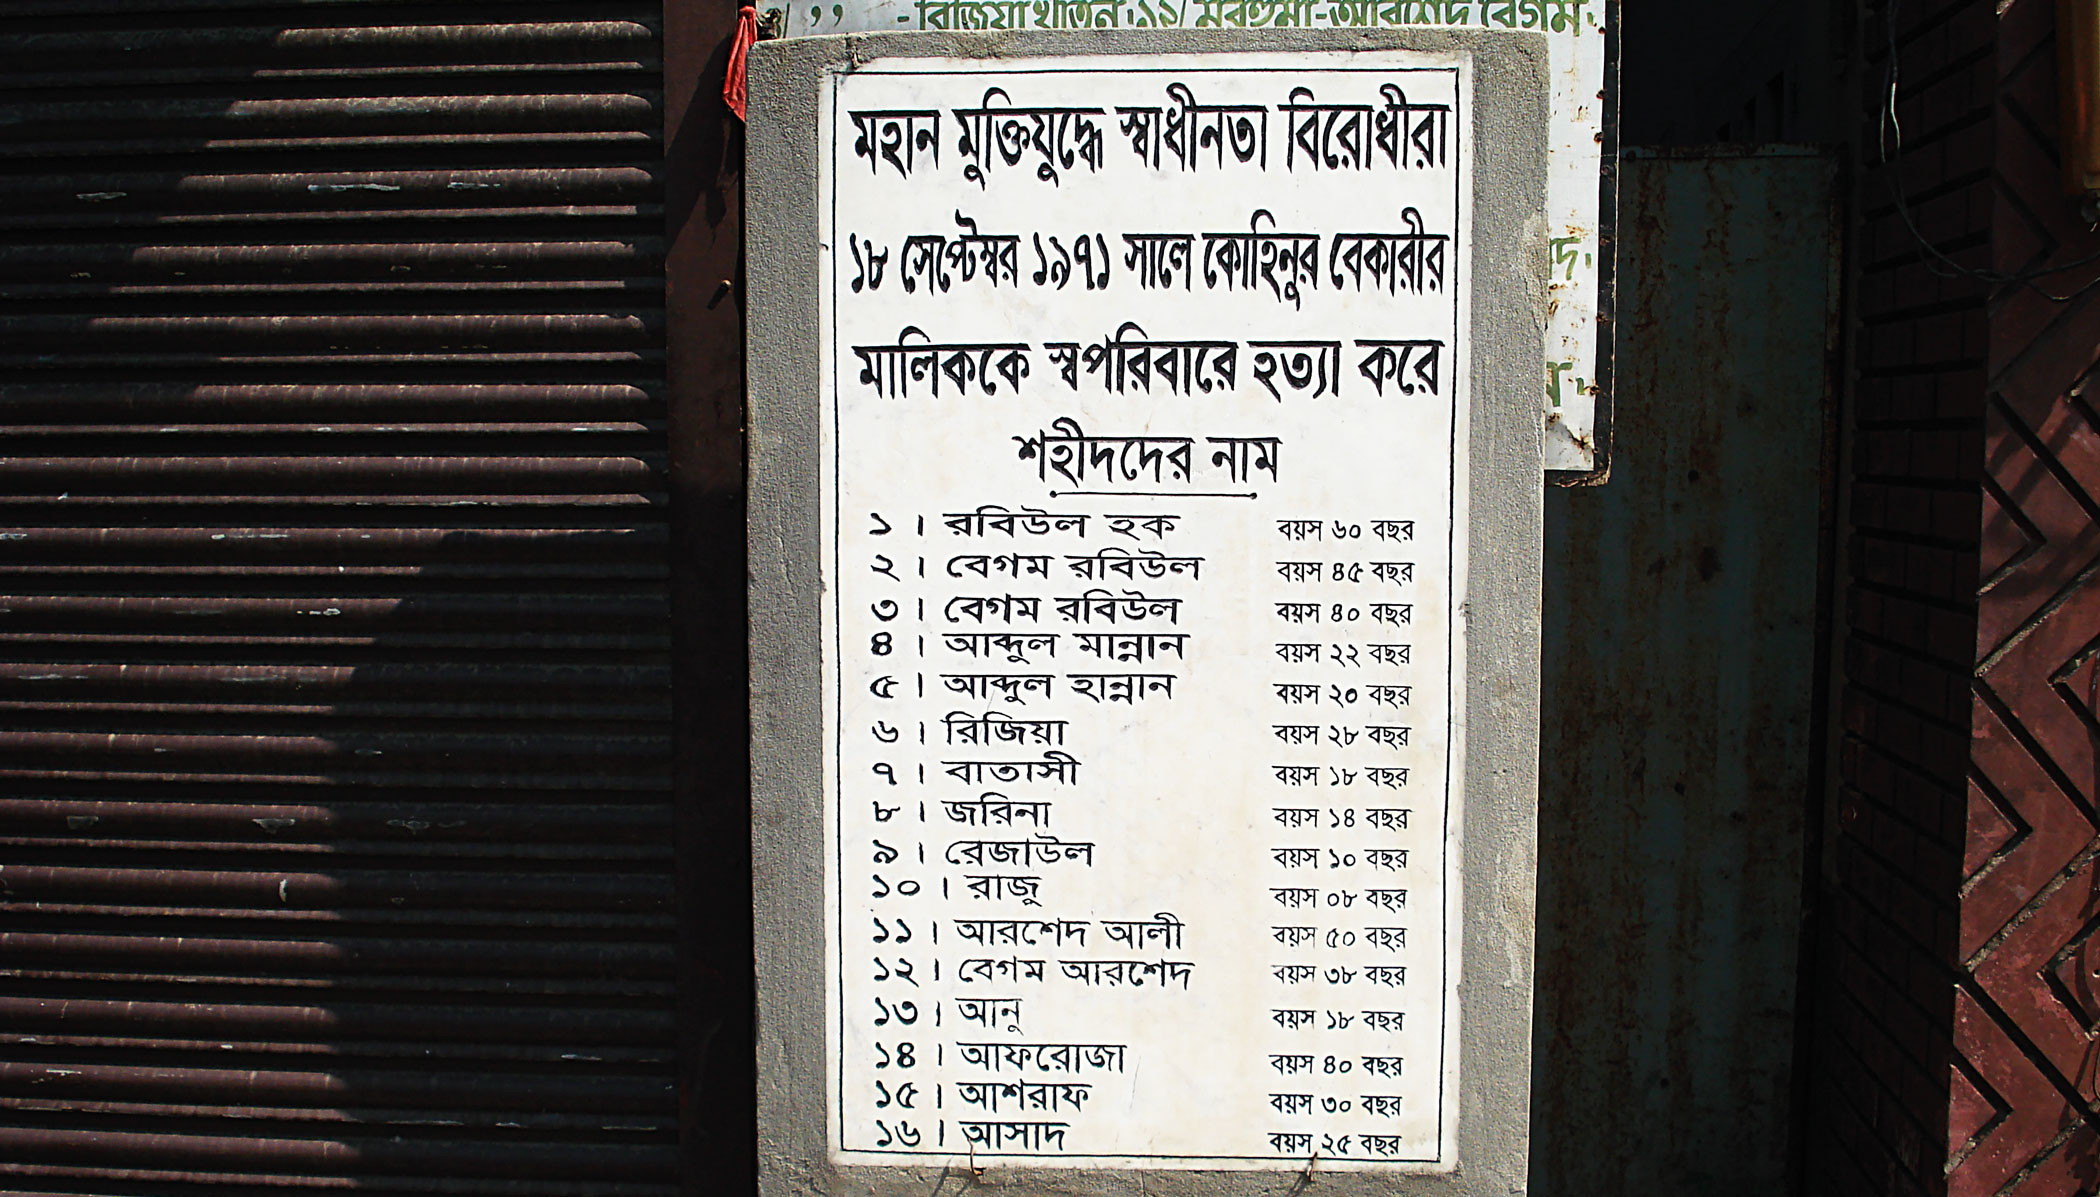 - রিজিয়া খাতুন ১১/ মরহুমা-আরশেদ বেগম.
মহান মুক্তিযুদ্ধে স্বাধীনতা বিরোধীরা
১৮ সেপ্টেম্বর ১৯৭১ সালে কোহিনুর বেকারীর
মালিককে স্বপরিবারে হত্যা করে
শহীদদের নাম
১ । রবিউল হক বয়স ৬০ বছর
২ । বেগম রবিউল বয়স ৪৫ বছর
৩ । বেগম রবিউল বয়স ৪০ বছর
৪ । আব্দুল মান্নান বয়স ২২ বছর
৫ । আব্দুল হান্নান বয়স ২০ বছর
৬ । রিজিয়া বয়স ২৮ বছর
৭ । বাতাসী বয়স ১৮ বছর
৮ । জরিনা বয়স ১৪ বছর
৯ । রেজাউল বয়স ১০ বছর
১০ । রাজু বয়স ০৮ বছর
১১ । আরশেদ আলী বয়স ৫০ বছর
১২ । বেগম আরশেদ বয়স ৩৮ বছর
১৩ । আনু বয়স ১৮ বছর
১৪ । আফরোজা বয়স ৪০ বছর
১৫ । আশরাফ বয়স ৩০ বছর
১৬ । আসাদ বয়স ২৫ বছর